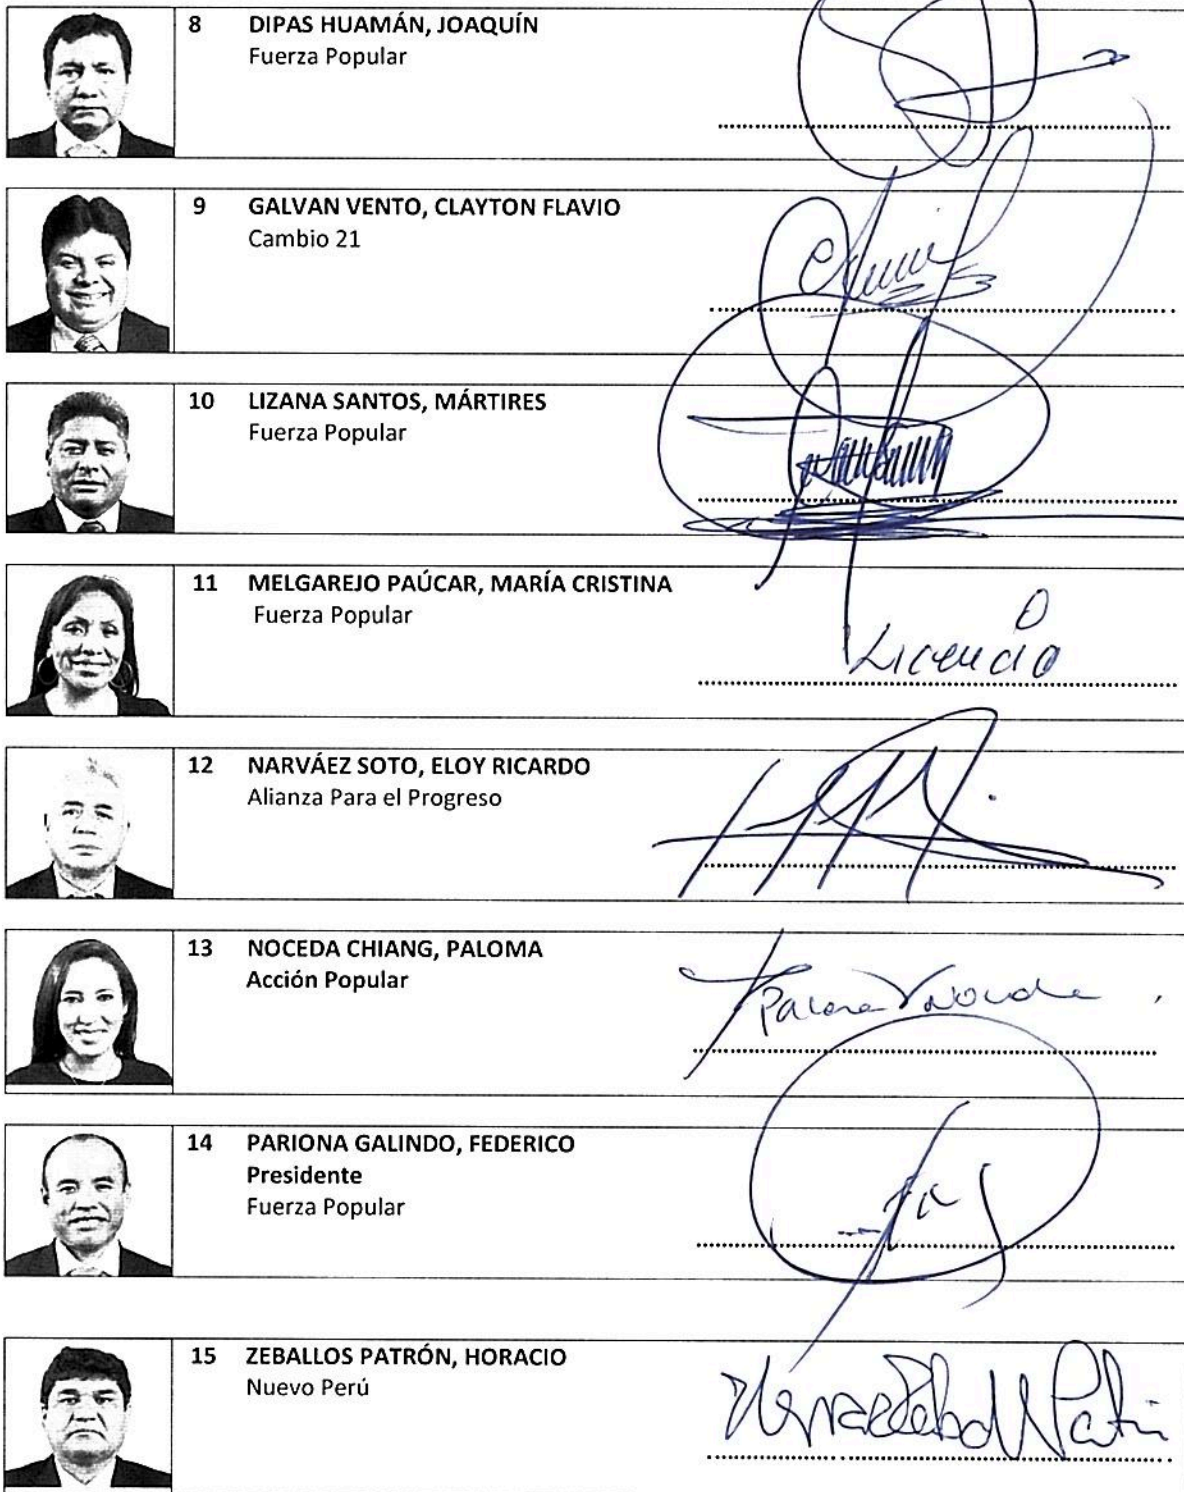 8 DIPAS HUAMÁN, JOAQUÍN
Fuerza Popular
9 GALVAN VENTO, CLAYTON FLAVIO
Cambio 21
10 LIZANA SANTOS, MÁRTIRES
Fuerza Popular
11 MELGAREJO PAÚCAR, MARÍA CRISTINA
Fuerza Popular
Licencia
12 NARVÁEZ SOTO, ELOY RICARDO
Alianza Para el Progreso
13 NOCEDA CHIANG, PALOMA
Acción Popular
Paloma Noceda
14 PARIONA GALINDO, FEDERICO
Presidente
Fuerza Popular
15 ZEBALLOS PATRÓN, HORACIO
Nuevo Perú